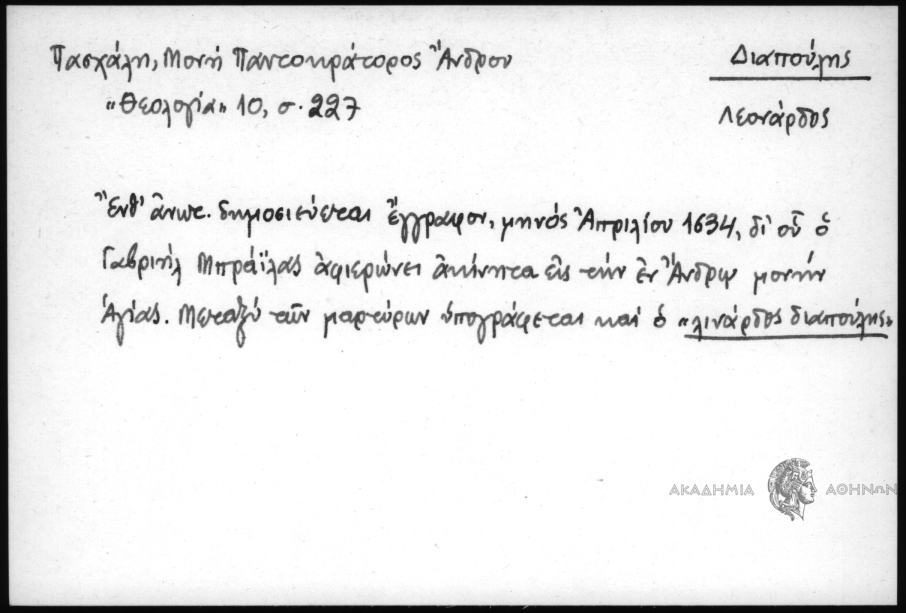 Πασχάλη, Μονή Παντοκράτορος Ἄνδρου
Διαπούλης
"Θεολογία" 10, σ. 227
Λεονάρδος
Ἔνθ' ἄνωτ. δημοσιεύεται ἔγγραφον, μηνός Ἀπριλίου 1634, δι' οὗ ὁ
Γαβριήλ Μπράϊλας ἀφιερώνει ἀκίνητα εἰς τήν ἐν Ἄνδρῳ μονήν
Ἁγίας. Μεταξύ τῶν μαρτύρων ὑπογράφεται καί ὁ "λινάρδος διαπούλης"
ΑΚΑΔΗΜΙΑ ΑΘΗΝΩΝ